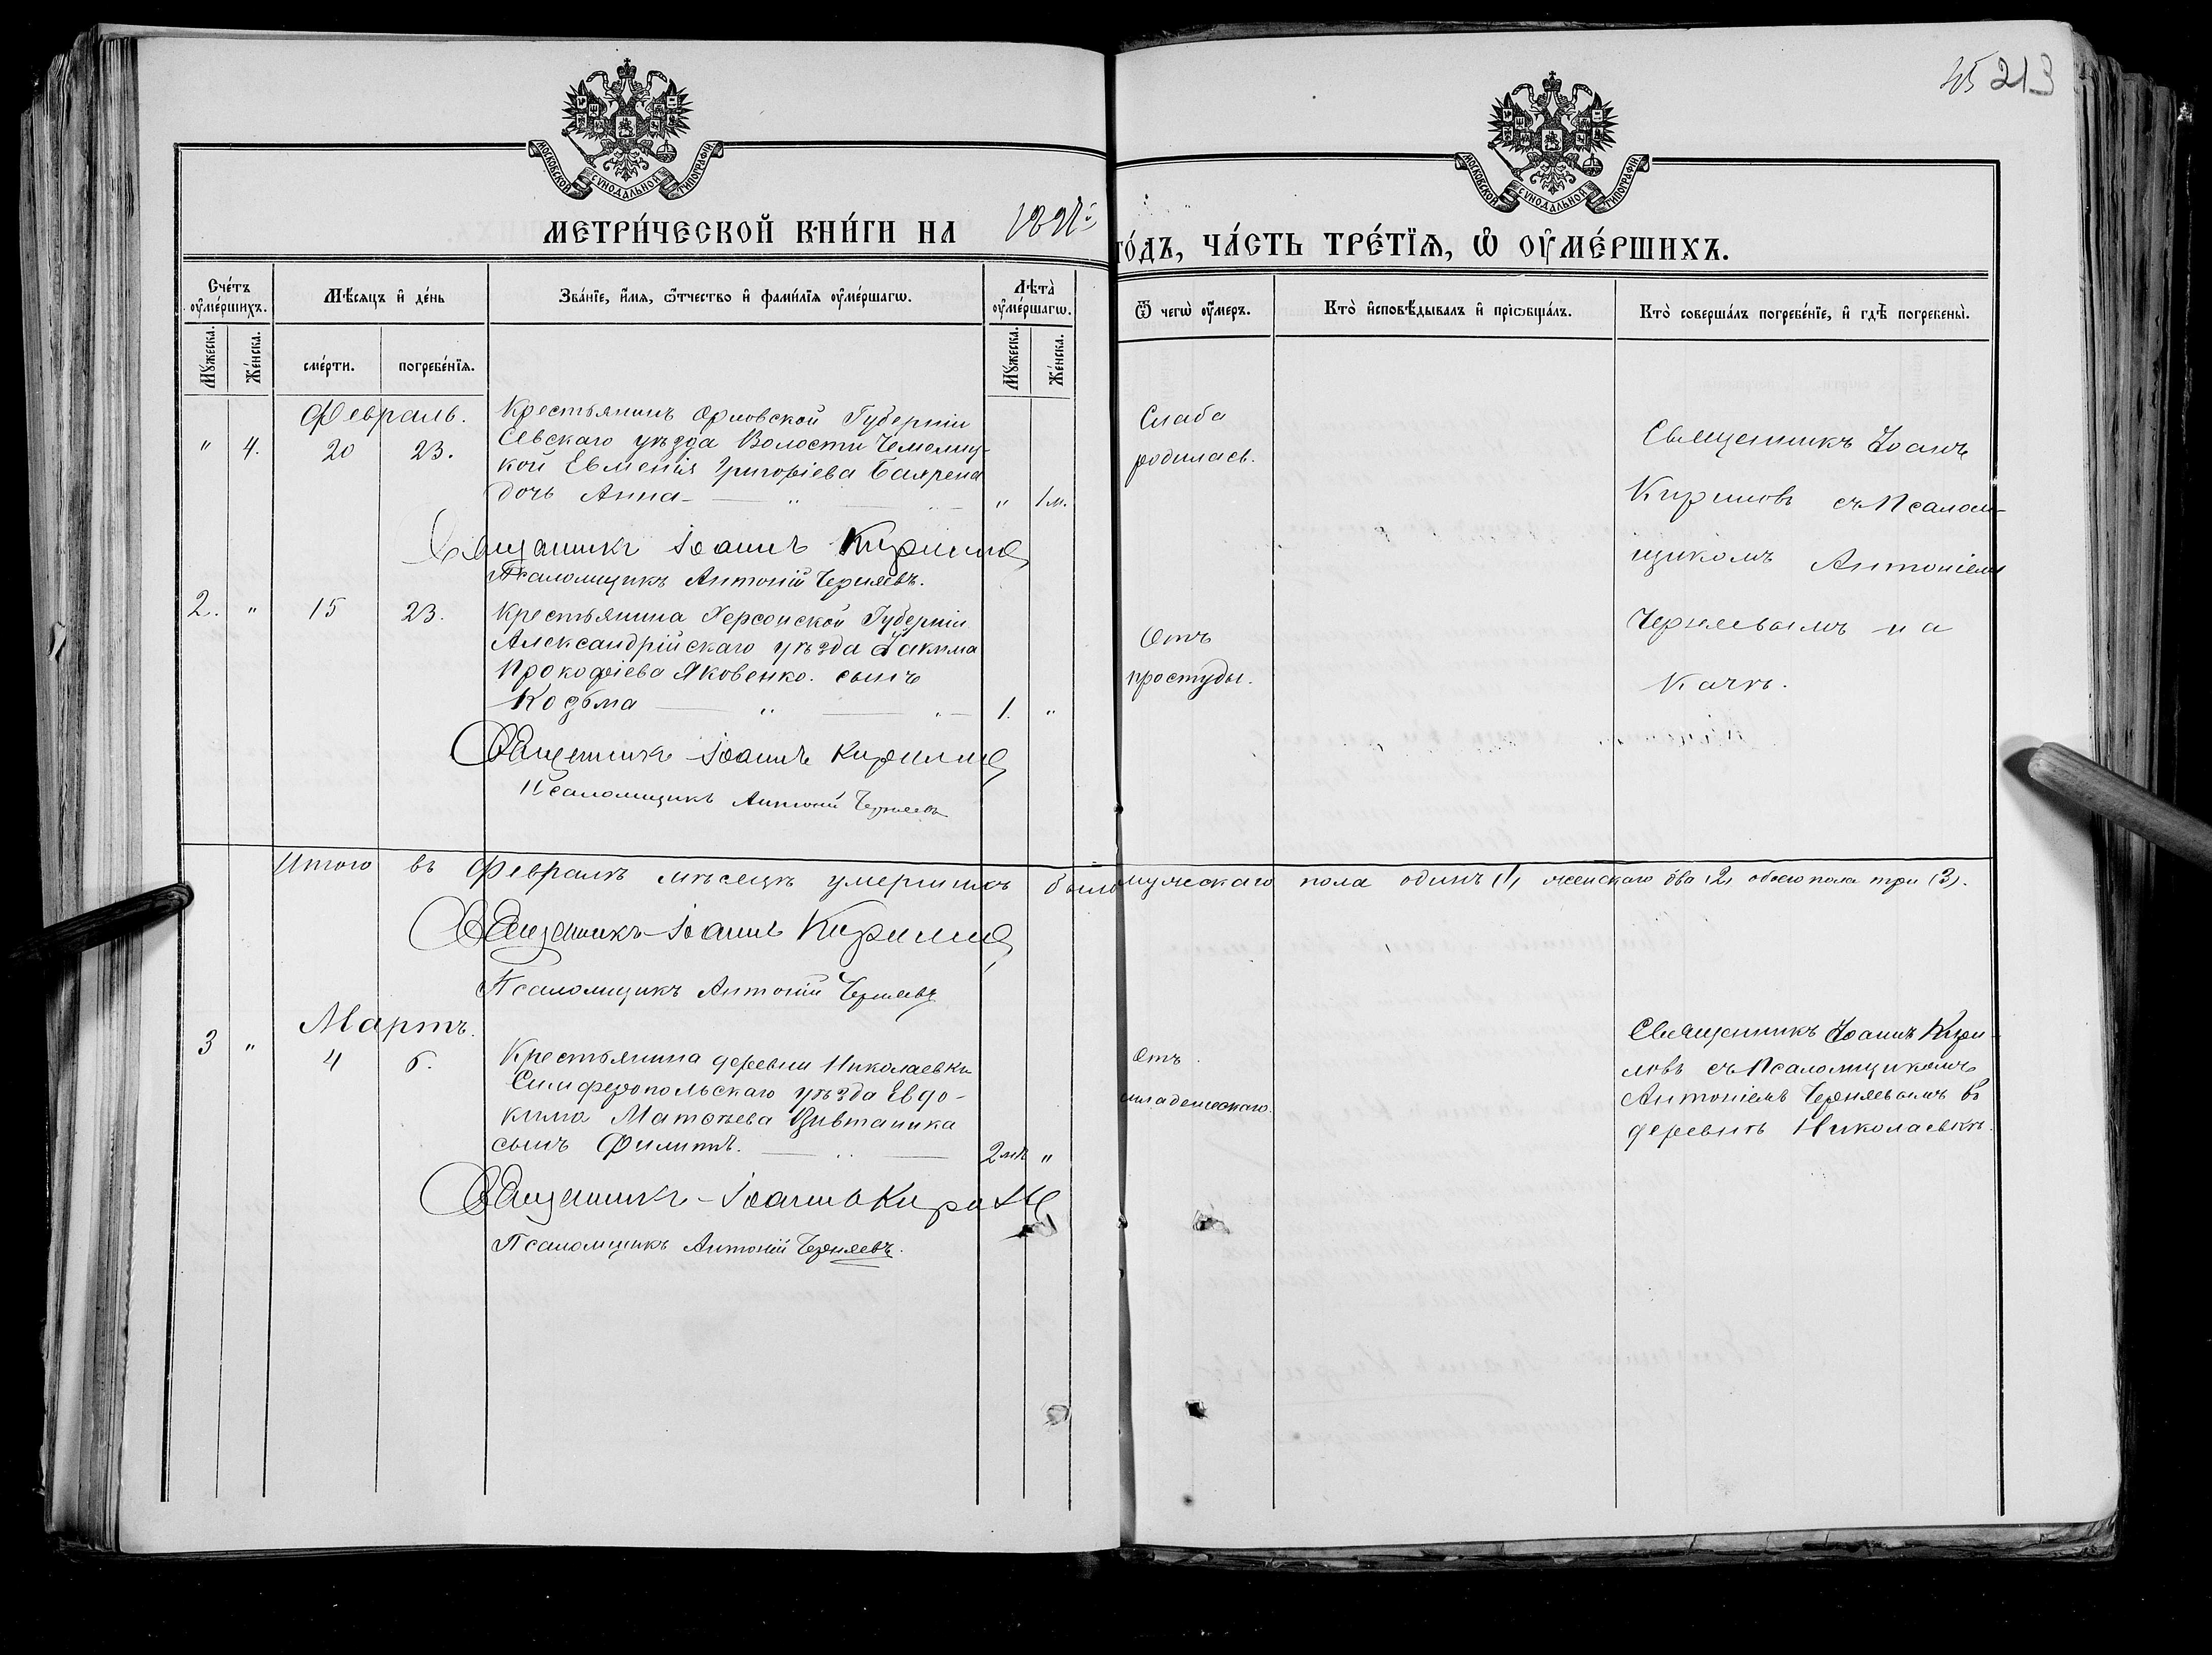 213
МОСКОВСКОЙ СѴНОДАЛЬНОЙ ТИПОГРАФІИ
МОСКОВСКОЙ СѴНОДАЛЬНОЙ ТИПОГРАФІИ
МЕТРИ́ЧЕСКОЙ КНИ́ГИ НА
ГО́ДЪ, ЧА́СТЬ ТРЕ́ТЇѦ, Ѡ҆ ОУ҆МЕ́РШИХЪ.
Сче́тъ оу҆ме́ршихъ.
Мѣ́сяцъ и҆ де́нь
Зва́нїе, и҆́мѧ, ѻ҆́тчество и҆ фами́лїѧ оу҆ме́ршагѡ.
Лѣта̀ оу҆ме́ршагѡ.
Ѿ чегѡ̀ оу҆́меръ.
Кто̀ и҆сповѣ́дывалъ и҆ прїѡбща́лъ.
Кто̀ соверша́лъ погребе́нїе, и҆ гдѣ̀ погребены̀.
Мꙋ́жеска.
Же́нска.
сме́рти.
погребе́нїѧ.
Мꙋ́жеска.
Же́нска.
Февраль.
" 4. 20 23.
Крестьянинъ Орловской Губерніи
Севскаго уѣзда Волости
кой Евменія Григоріева
дочь Анна " 1 м.
Слаба
родилась.
Священникъ Іоаннъ
Кириловъ съ Псалом-
щикомъ Антоніемъ
Черняевымъ на
Качѣ.
Священникъ Іоаннъ Кириловъ
Псаломщикъ Антоній Черняевъ.
2. " 15 23.
Крестьянина Херсонской Губерніи
Александрійскаго уѣзда Іакима
Прокофіева Яковенко. сынъ
Козьма 1. "
Отъ
простуды.
Священникъ Іоаннъ Кириловъ
Псаломщикъ Антоній Черняевъ
Итого въ Февралѣ мѣсяцѣ умершихъ было мужескаго пола одинъ (1) женскаго два (2) обоего пола три (3).
Священникъ Іоаннъ Кириловъ
Псаломщикъ Антоній Черняевъ
Мартъ.
3 " 4 6.
Крестьянина деревни Николаевки
Симферопольскаго уѣзда Евдо-
кима Матѳѣева
сынъ Филиппъ. 2 мѣ "
Отъ
младенческаго.
Священникъ Іоаннъ Кири-
ловъ съ Псаломщикомъ
Антоніемъ Черняевымъ въ
деревнѣ Николаевкѣ.
Священникъ Іоаннъ Кириловъ
Псаломщикъ Антоній Черняевъ.